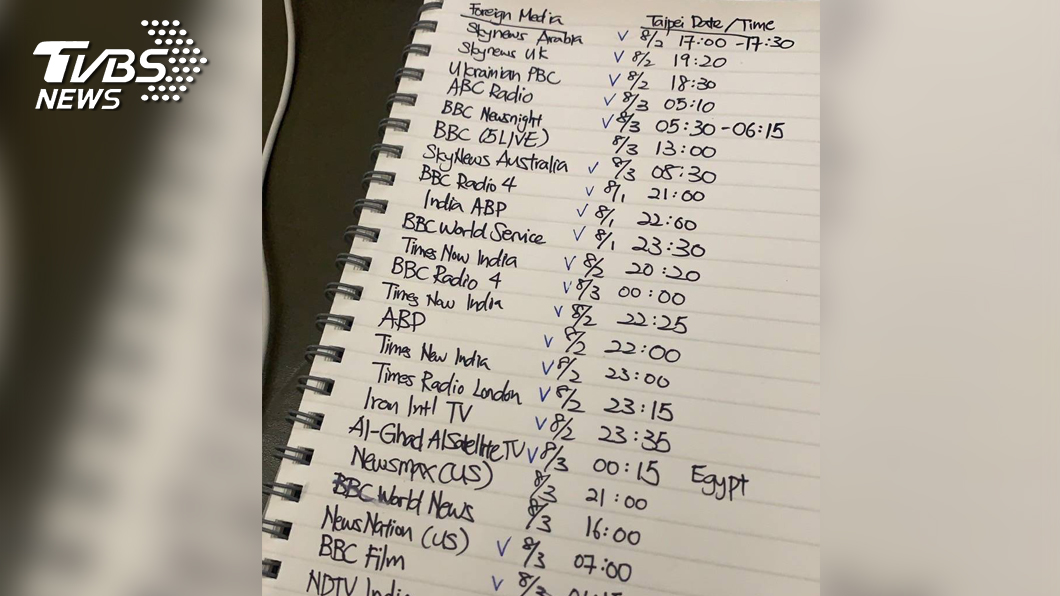 TVBS
NEWS
Foreign Media Taipei Date/Time
Skynews Arabia ✓ 8/2 17:00-17:30
Skynews UK ✓ 8/2 19:20
Ukrainian PBC ✓ 8/2 18:30
ABC Radio ✓ 8/3 05:10
BBC Newsnight ✓ 8/3 05:30-06:15
BBC (5LIVE) 8/3 13:00
SkyNews Australia ✓ 8/3 08:30
BBC Radio 4 ✓ 8/1 21:00
India ABP ✓ 8/1 22:00
BBC World Service ✓ 8/1 23:30
Times Now India ✓ 8/2 20:20
BBC Radio 4 ✓ 8/3 00:00
Times Now India ✓ 8/2 22:25
ABP ✓ 8/2 22:00
Times Now India ✓ 8/2 23:00
Times Radio London ✓ 8/2 23:15
Iran Intl TV ✓ 8/2 23:35
Al-Ghad AlSatellite TV ✓ 8/3 00:15 Egypt
Newsmax (US) 8/3 21:00
BBC World News 8/3 16:00
NewsNation (US) ✓ 8/3 07:00
BBC Film ✓ 8/3
NDTV